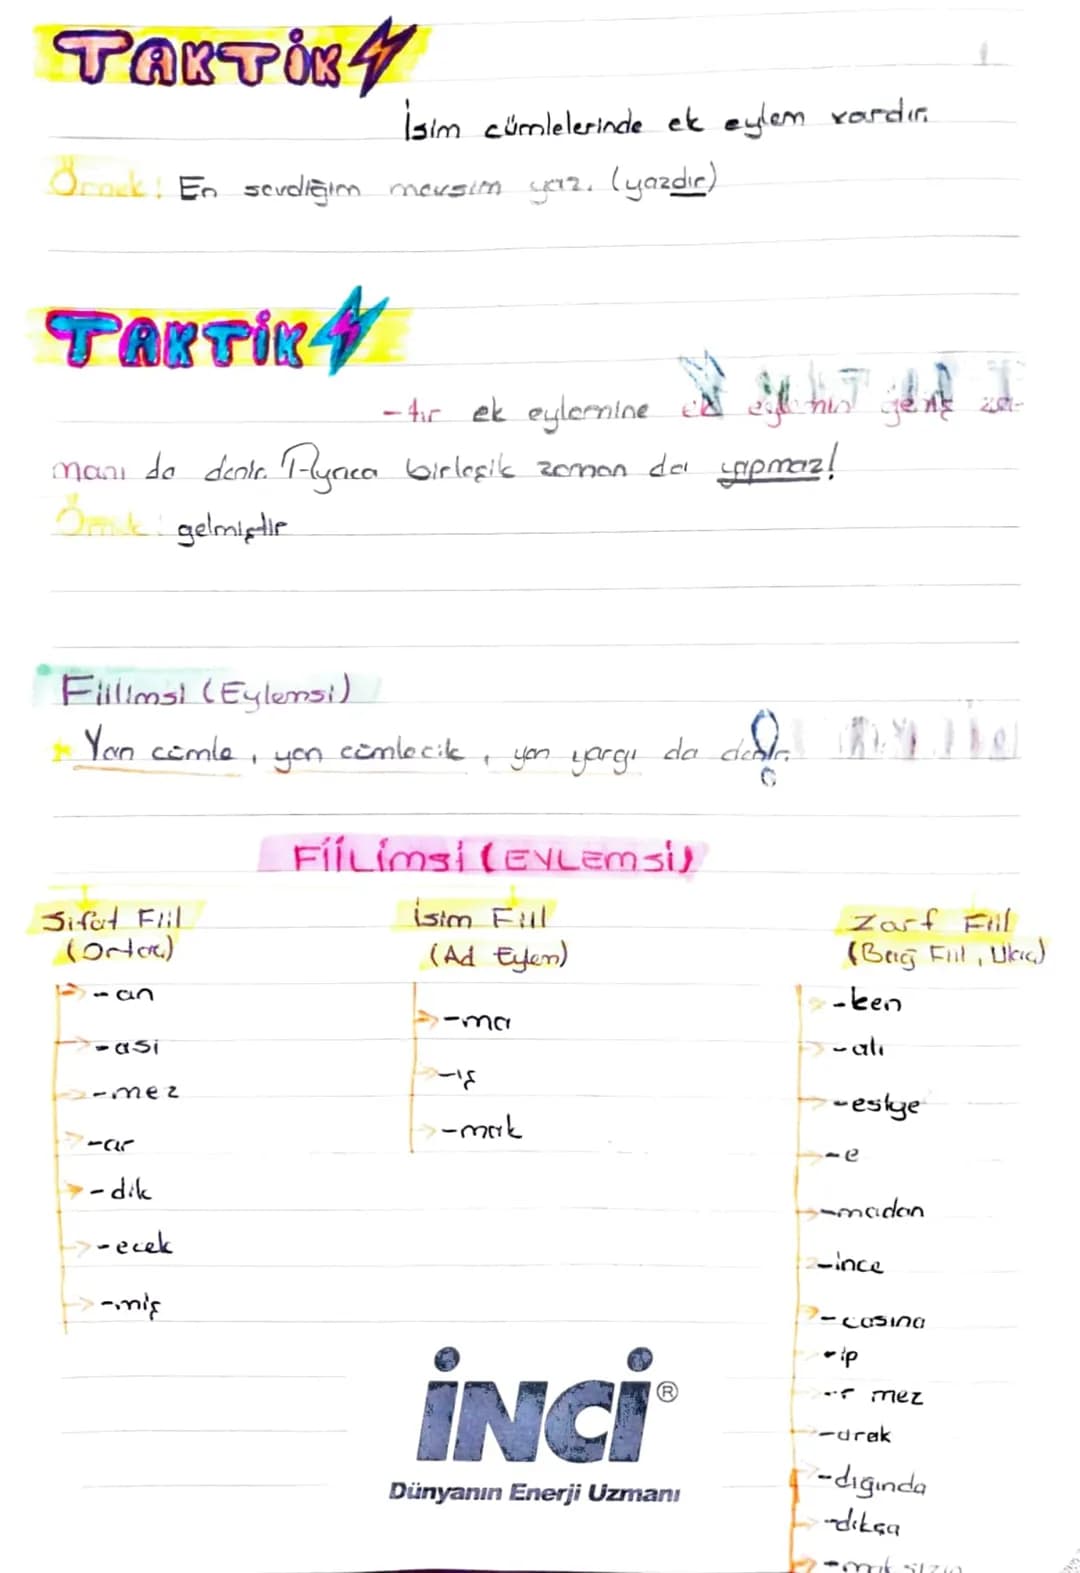 TAKTİK
İsim cümlelerinde ek eylem vardır.
Örnek: En sevdiğim mevsim yaz. (yazdır)
TAKTİK
-tır ek eylemine ek eylemin geniş za-
manı da denir. Ayrıca birleşik zaman da yapmaz!
Örnek: gelmiştir
Fiilimsi (Eylemsi)
Yan cümle, yan cümlecik, yan yargı da denir.
FİİLİMSİ (EYLEMSİ)
Sıfat Fiil
(Ortaç)
-an
-asi
-mez
-ar
-dik
-ecek
-miş
İsim Fiil
(Ad Eylem)
-ma
-ış
-mak
Zarf Fiil
(Bağ Fiil, Ulaç)
-ken
-alı
-esiye
-e
-madan
-ince
-casına
-ip
-r mez
-arak
-dığında
-dıkça
-maksızın
İNCİ®
Dünyanın Enerji Uzmanı